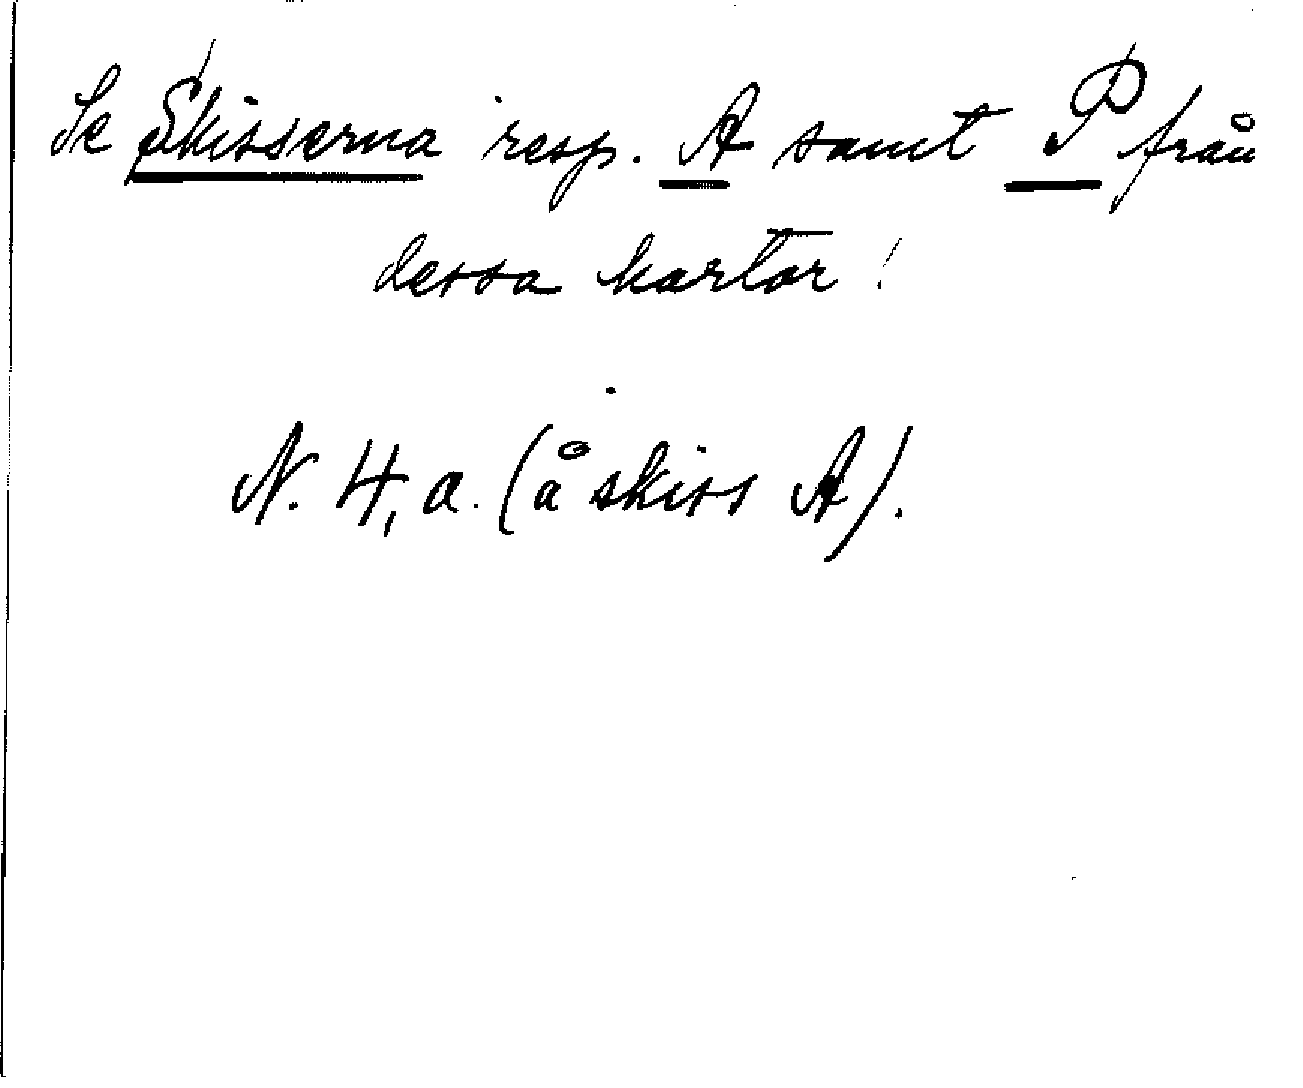 Se Skisserna resp. A samt P från
dessa kartor!
N. 4, a. (å skiss A).